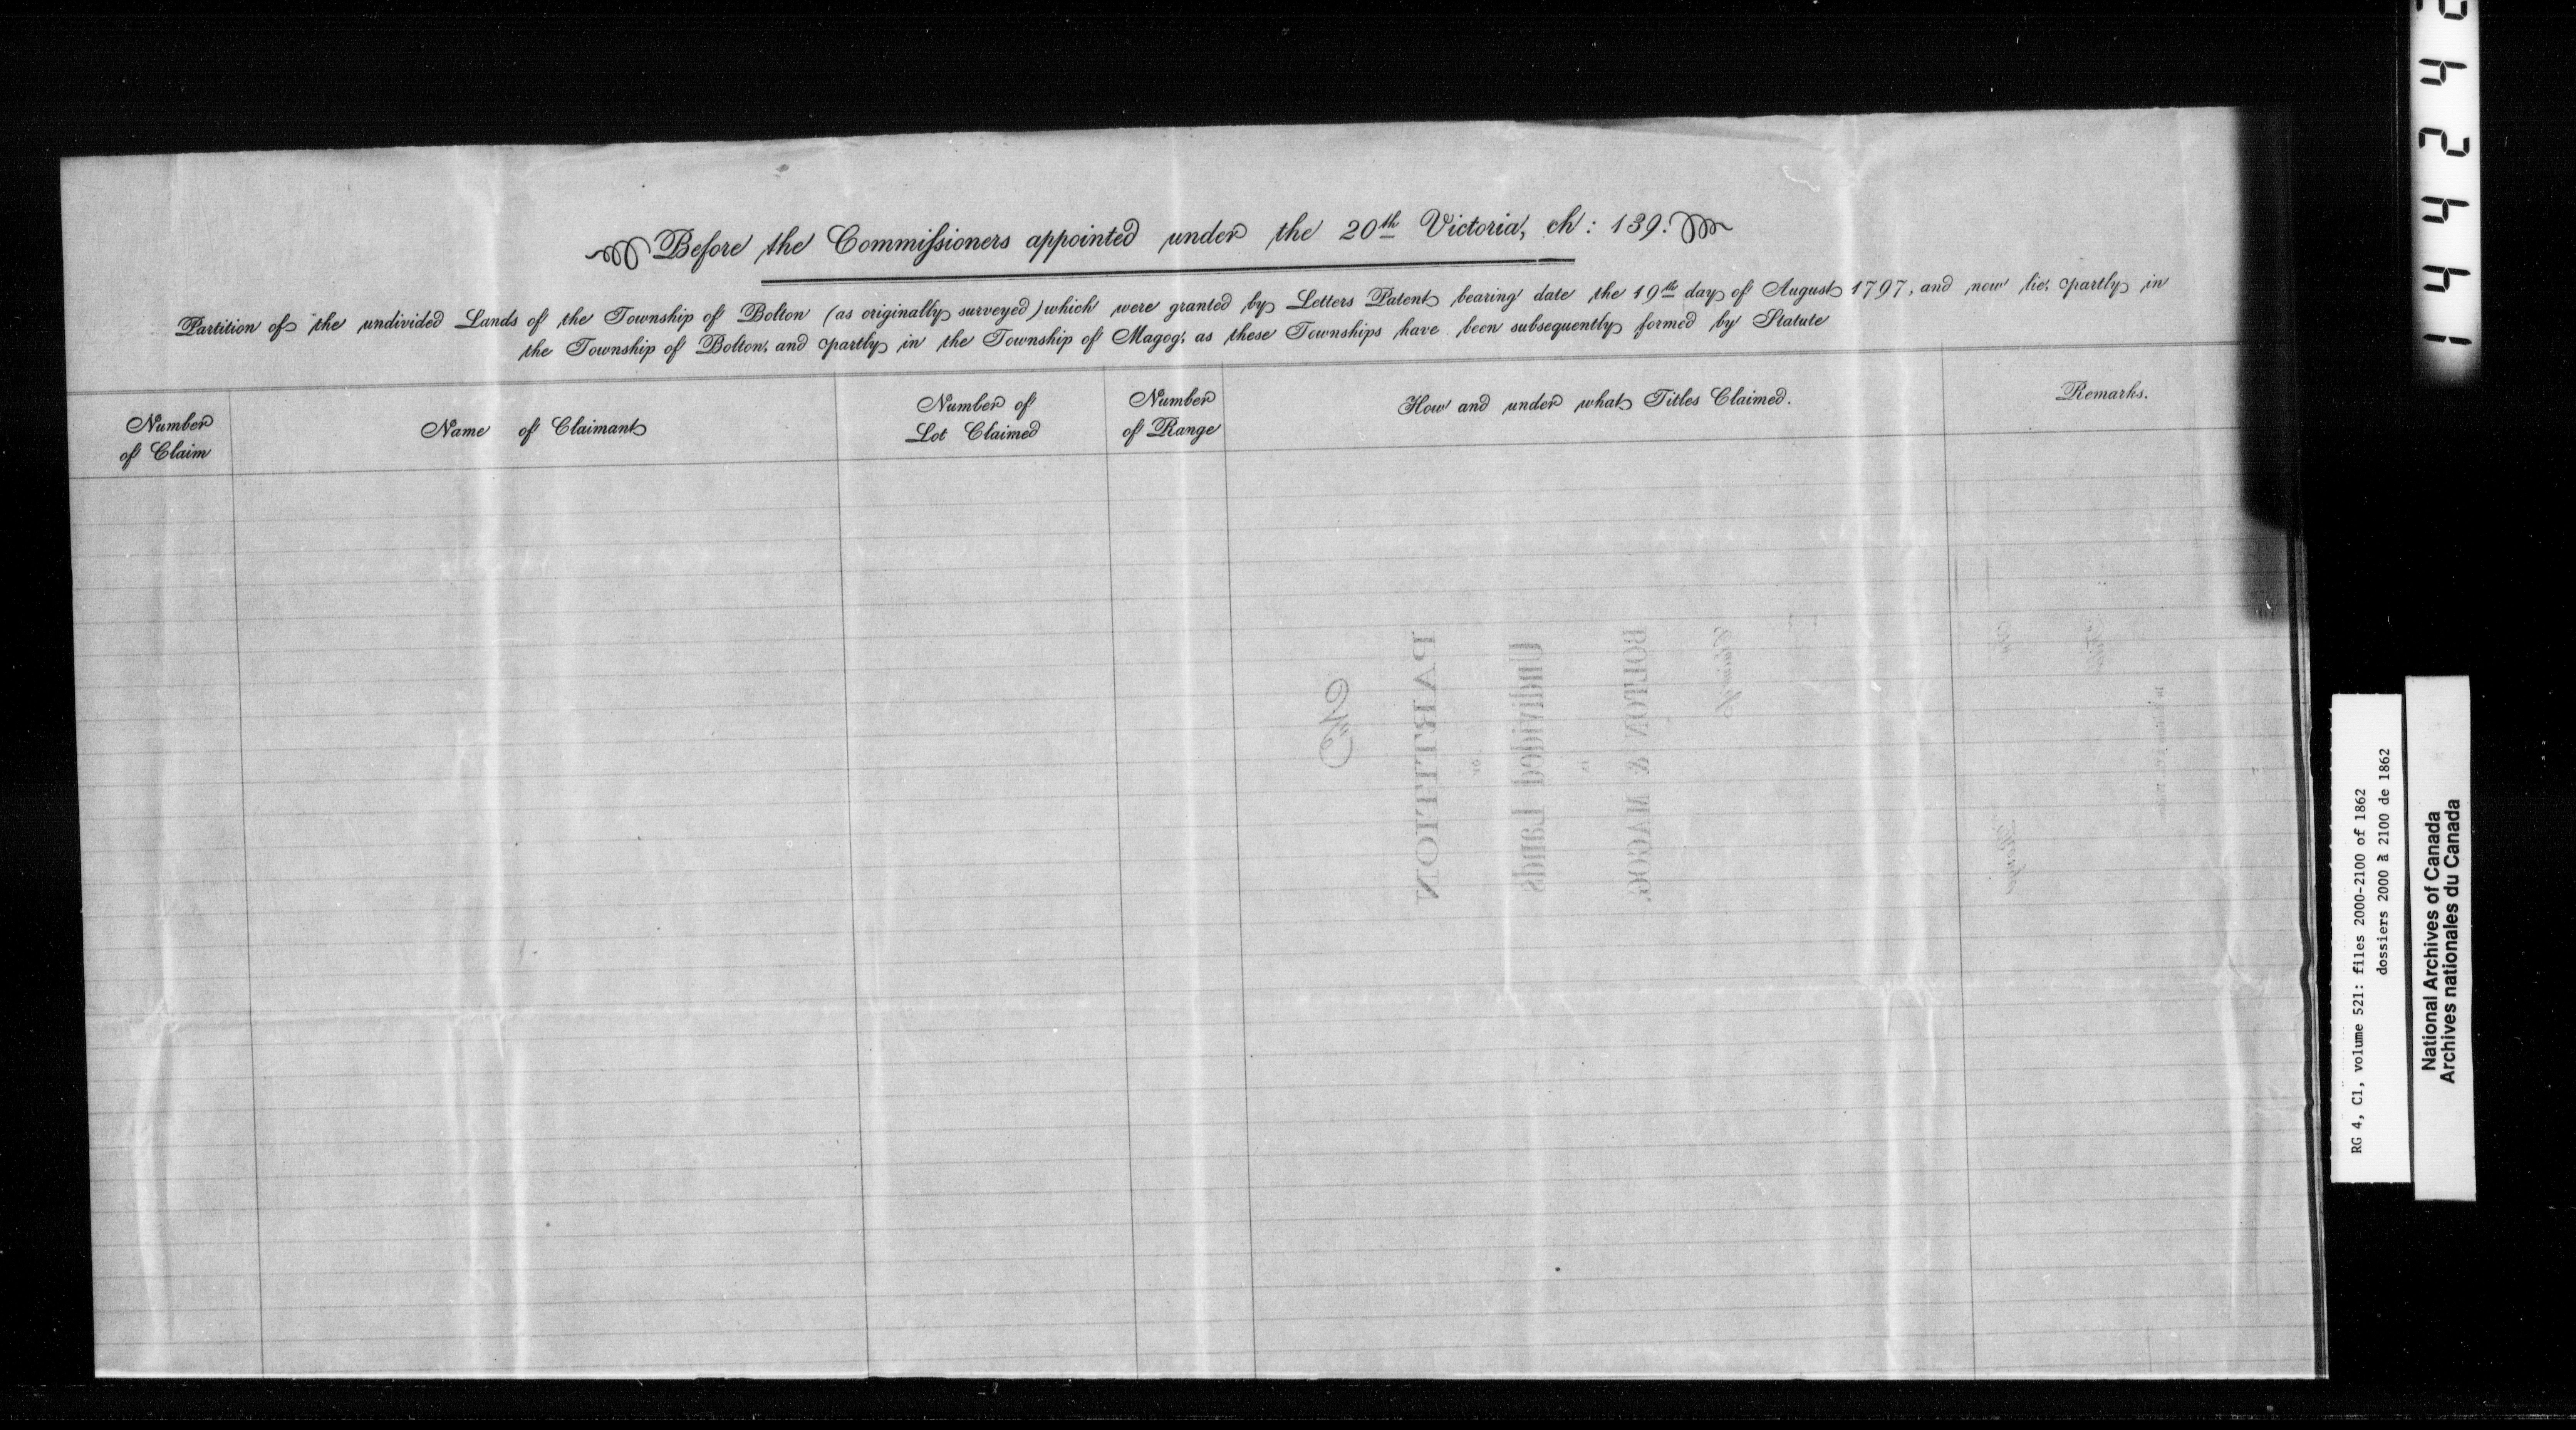 Before the Commissioners appointed under the 20th Victoria, ch: 139.
Partition of the undivided Lands of the Township of Bolton (as originally surveyed) which were granted by Letters Patent bearing date the 19th day of August 1797, and now lie, partly in
the Township of Bolton, and partly in the Township of Magog, as these Townships have been subsequently formed by Statute
Number of Claim
Name of Claimant
Number of Lot Claimed
Number of Range
How and under what Titles Claimed.
Remarks.
No
PARTITION
OF
Undivided Lands
IN
BOLTON & MAGOG.
Claimant
14424
RG 4, C1, volume 521: files 2000-2100 of 1862
dossiers 2000 à 2100 de 1862
National Archives of Canada
Archives nationales du Canada